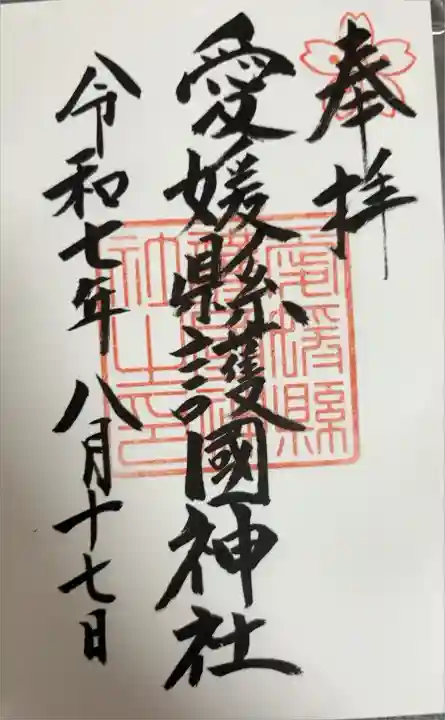 奉拝
愛媛縣護國神社
令和七年八月十七日
愛媛縣
護國神
社之印